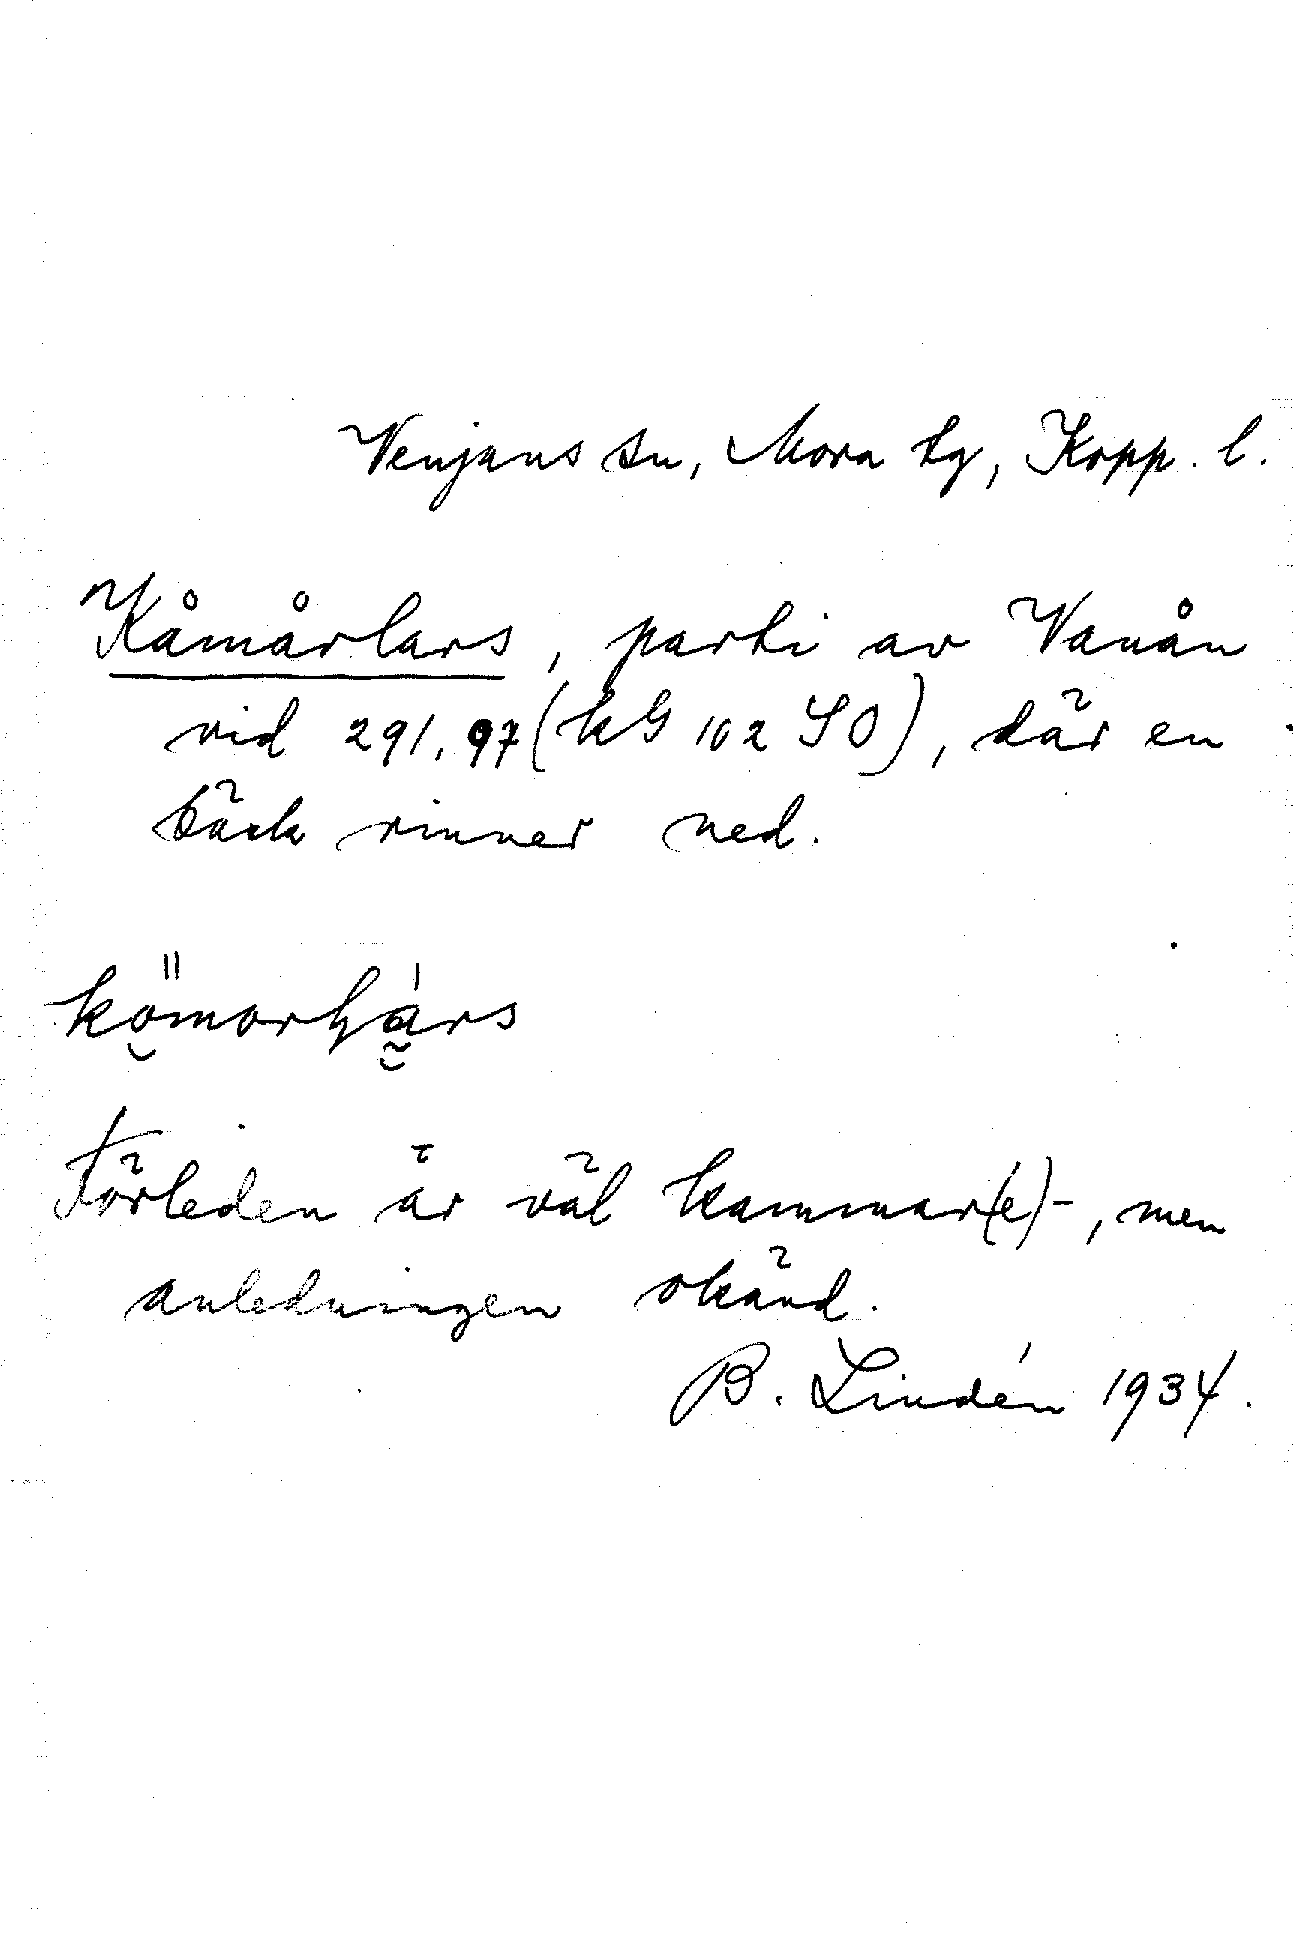 Venjans sn, Mora tg, Kopp. l.
Kåmårlars, parti av Vanån
vid 291.97 (kG 102 SO), där en
bäck rinner ned.
Förleden är väl kammar(e)-, men
anledningen okänd.
B. Lindén 1934.